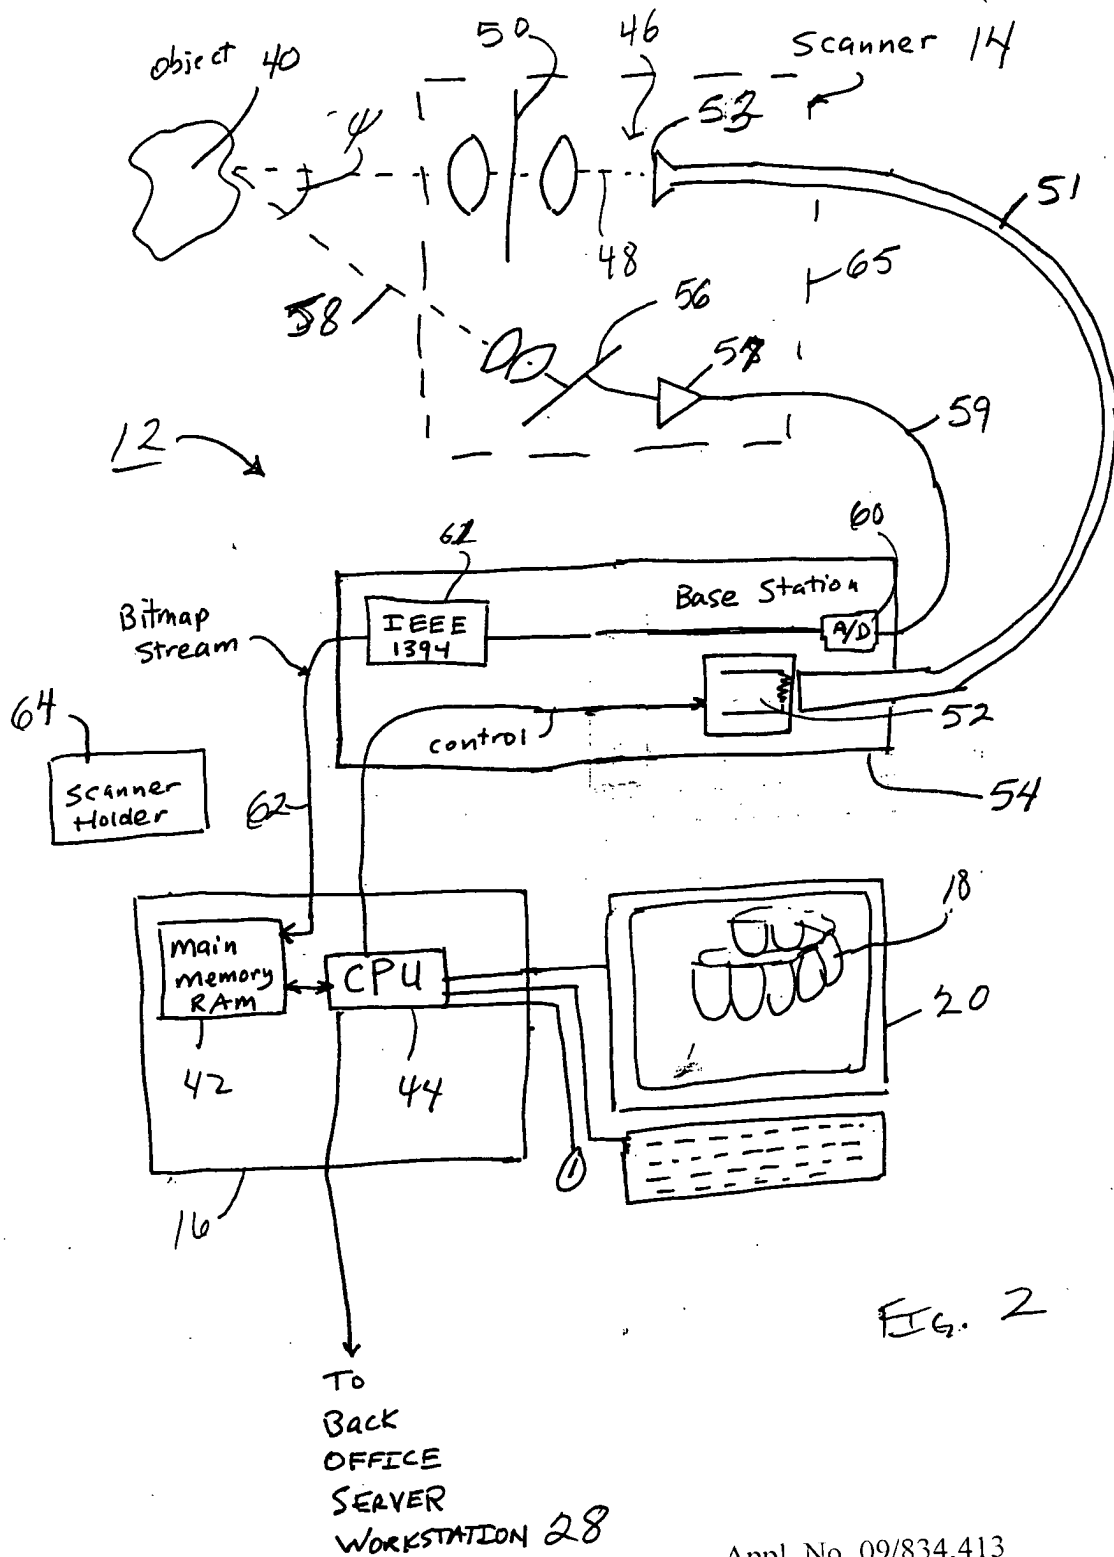 Object 40
50
46
Scanner 14
ψ
53
51
48
65
58
56
57
59
12
60
61
Base Station
Bitmap
Stream
IEEE
1394
A/D
64
52
control
Scanner
Holder
62
54
18
Main
memory
RAM
CPU
20
42
44
16
FIG. 2
To
Back
OFFICE
SERVER
WORKSTATION 28
Appl. No. 09/834,413